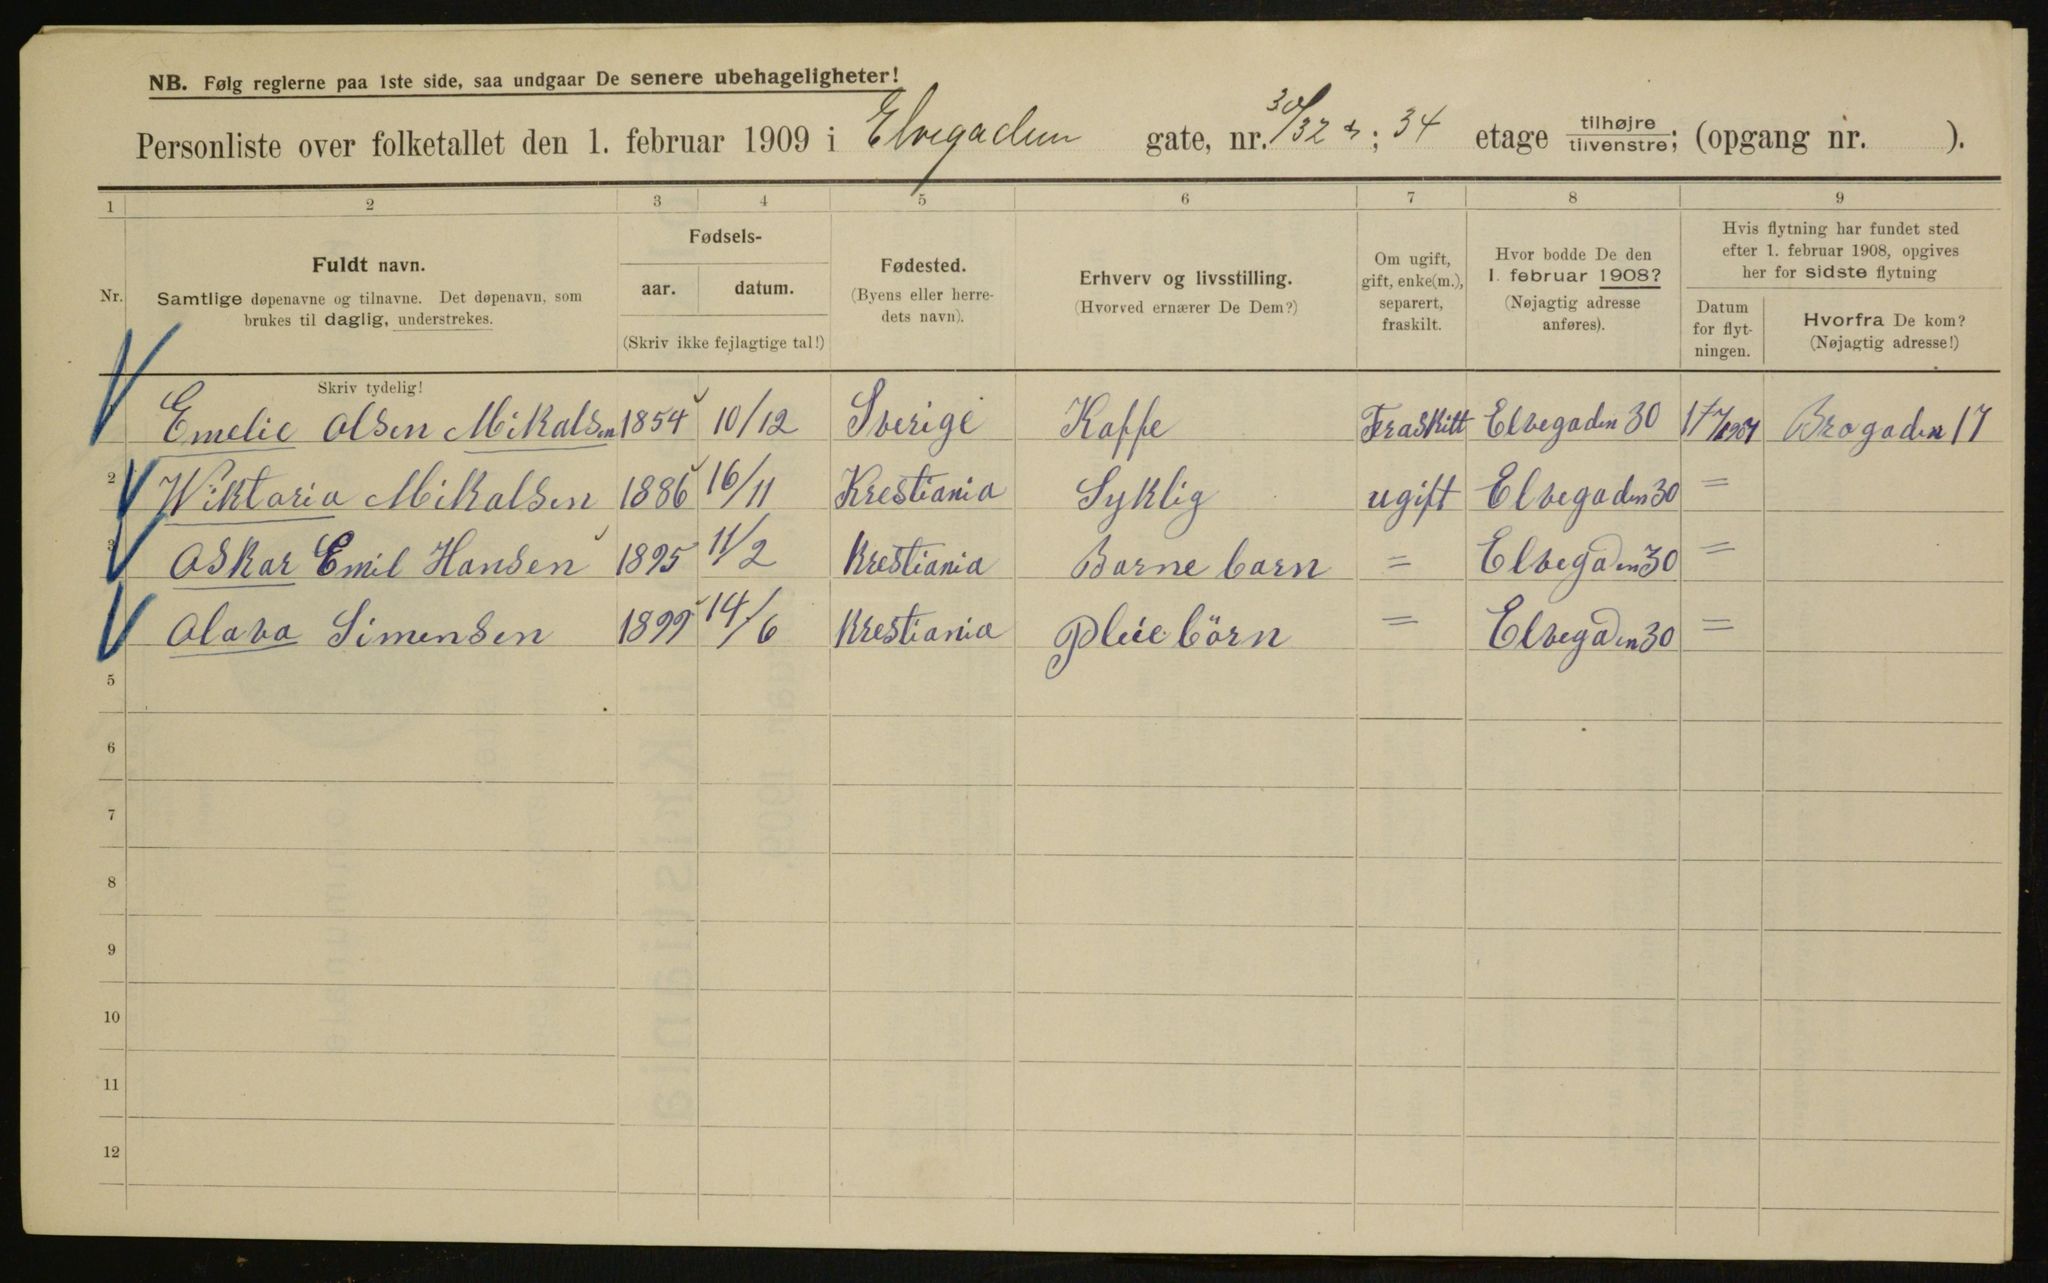 NB. Følg reglerne paa 1ste side, saa undgaar De senere ubehageligheter!
Personliste over folketallet den 1. februar 1909 i Elvegaden gate, nr. 30/32 ; 34 etage tilhøjre tilvenstre; (opgang nr. ).
1 2 3 4 5 6 7 8 9
Nr.
Fuldt navn.
Samtlige døpenavne og tilnavne. Det døpenavn, som
brukes til daglig, understrekes.
Fødsels-
aar. datum.
(Skriv ikke fejlagtige tal!)
Fødested.
(Byens eller herre-
dets navn).
Erhverv og livsstilling.
(Hvorved ernærer De Dem?)
Om ugift,
gift, enke(m.),
separert,
fraskilt.
Hvor bodde De den
1. februar 1908?
(Nøjagtig adresse
anføres).
Hvis flytning har fundet sted
efter 1. februar 1908, opgives
her for sidste flytning
Datum
for flyt-
ningen.
Hvorfra De kom?
(Nøjagtig adresse!)
Skriv tydelig!
Emelie Olsen Mikalsen 1854 10/12 Sverige Kaffe Fraskilt Elvegaden 30 Brogaden 17
2 Wiktoria Mikalsen 1886 16/11 Krestiania Syklig ugift Elvegaden 30 =
3 Oskar Emil Hansen 1895 11/2 Krestiania Barne barn = Elvegaden 30 =
Olava Simensen 1899 14/6 Krestiania Pleie börn = Elvegaden 30 =
5
6
7
8
9
10
11
12